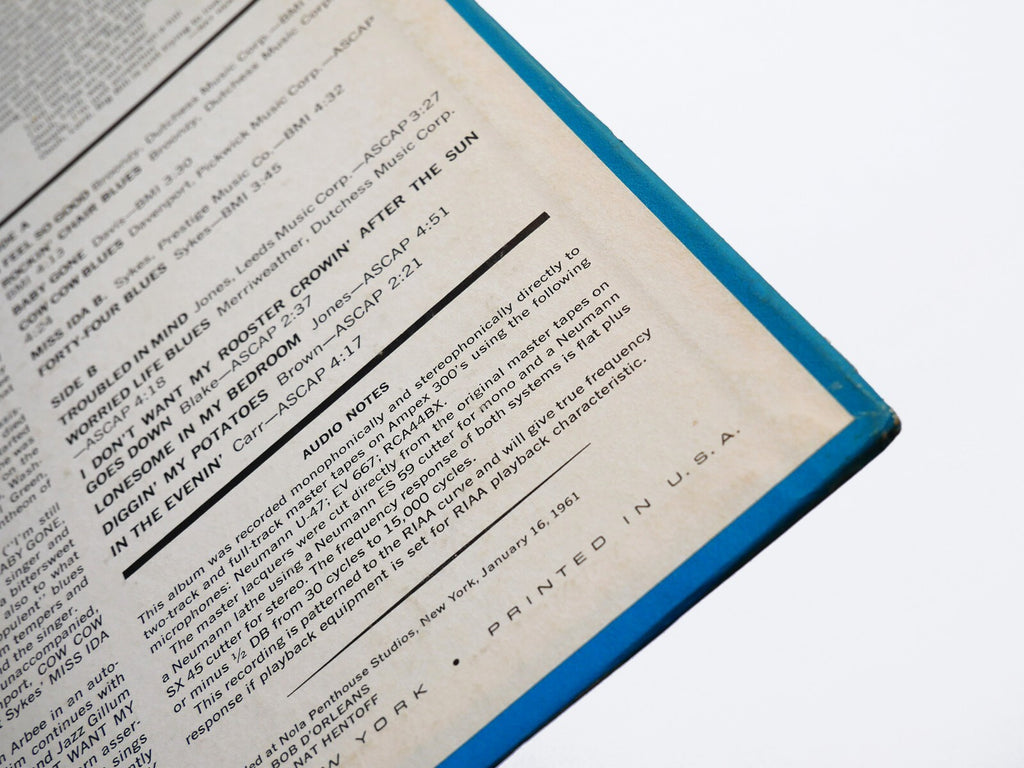 DE A
FEEL SO GOOD Broonzy, Dutchess Music Corp.—BMI
BMI 4:13
ROCKIN' CHAIR BLUES Broonzy, Dutchess Music Corp.
BABY GONE Davis—BMI 3:30
COW COW BLUES Davenport, Pickwick Music Corp.—ASCAP
4:24
MISS IDA B. Sykes, Prestige Music Co.—BMI 4:32
FORTY-FOUR BLUES Sykes—BMI 3:45
SIDE B
TROUBLED IN MIND Jones, Leeds Music Corp.—ASCAP 3:27
WORRIED LIFE BLUES Merriweather, Dutchess Music Corp.
—ASCAP 4:18
I DON'T WANT MY ROOSTER CROWIN' AFTER THE SUN
GOES DOWN Blake—ASCAP 2:37
LONESOME IN MY BEDROOM Jones—ASCAP 4:51
DIGGIN' MY POTATOES Brown—ASCAP 2:21
IN THE EVENIN' Carr—ASCAP 4:17
AUDIO NOTES
This album was recorded monophonically and stereophonically directly to
two-track and full-track master tapes on Ampex 300's using the following
microphones: Neumann U-47; EV 667; RCA44BX.
The master lacquers were cut directly from the original master tapes on
a Neumann lathe using a Neumann ES 59 cutter for mono and a Neumann
SX 45 cutter for stereo. The frequency response of both systems is flat plus
or minus ½ DB from 30 cycles to 15,000 cycles.
This recording is patterned to the RIAA curve and will give true frequency
response if playback equipment is set for RIAA playback characteristic.
ed at Nola Penthouse Studios, New York, January 16, 1961
BOB D'ORLEANS
NAT HENTOFF
W YORK • PRINTED IN U.S.A.
Wash-
Green-
ntheon of
("I'm still
ABY GONE,
singer and
bittersweet
also to what
opulent' blues
m tempers and
d the singer.
unaccompanied,
port, COW COW
Sykes' MISS IDA
Arbee in an auto-
im continues with
and Jazz Gillum
T WANT MY
rn asser-
sings
ntly